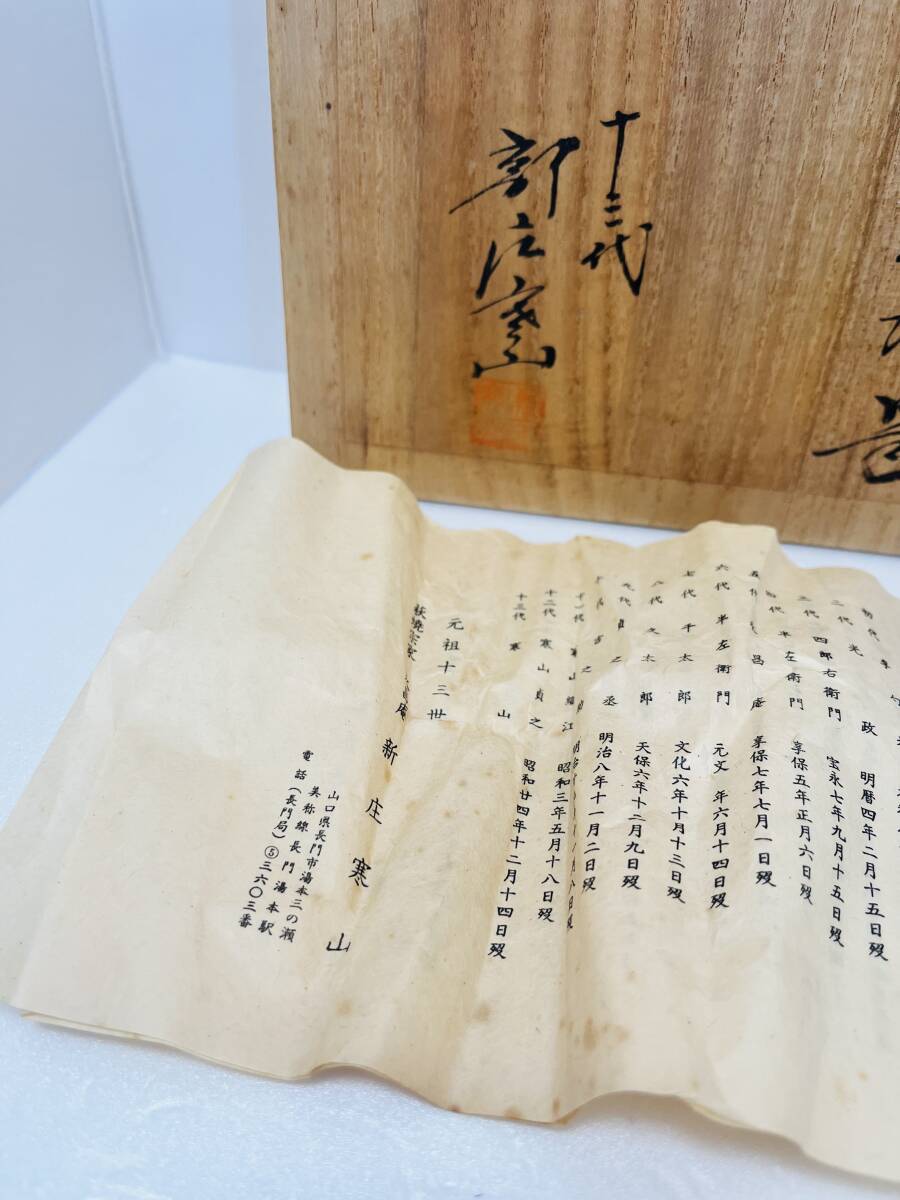 十三代
新庄寒山
政 明暦四年二月十五日歿
三代 四郎右衛門 宝永七年九月十五日歿
半左衛門 享保五年正月六日歿
昌庵 享保七年七月一日歿
六代 半左衛門 元文 年六月十四日歿
七代 千太郎 文化六年十月十三日歿
八代 文太郎 天保六年十二月九日歿
九代 貞之丞 明治八年十一月二日歿
十二代 寒山貞之 昭和三年五月十八日歿
十三代 寒山 昭和廿四年十二月十四日歿
元祖十三世
萩焼宗家
庵 新庄寒山
山口県長門市湯本三の瀬
美祢線長門湯本駅
電話(長門局)⑤三六〇三番